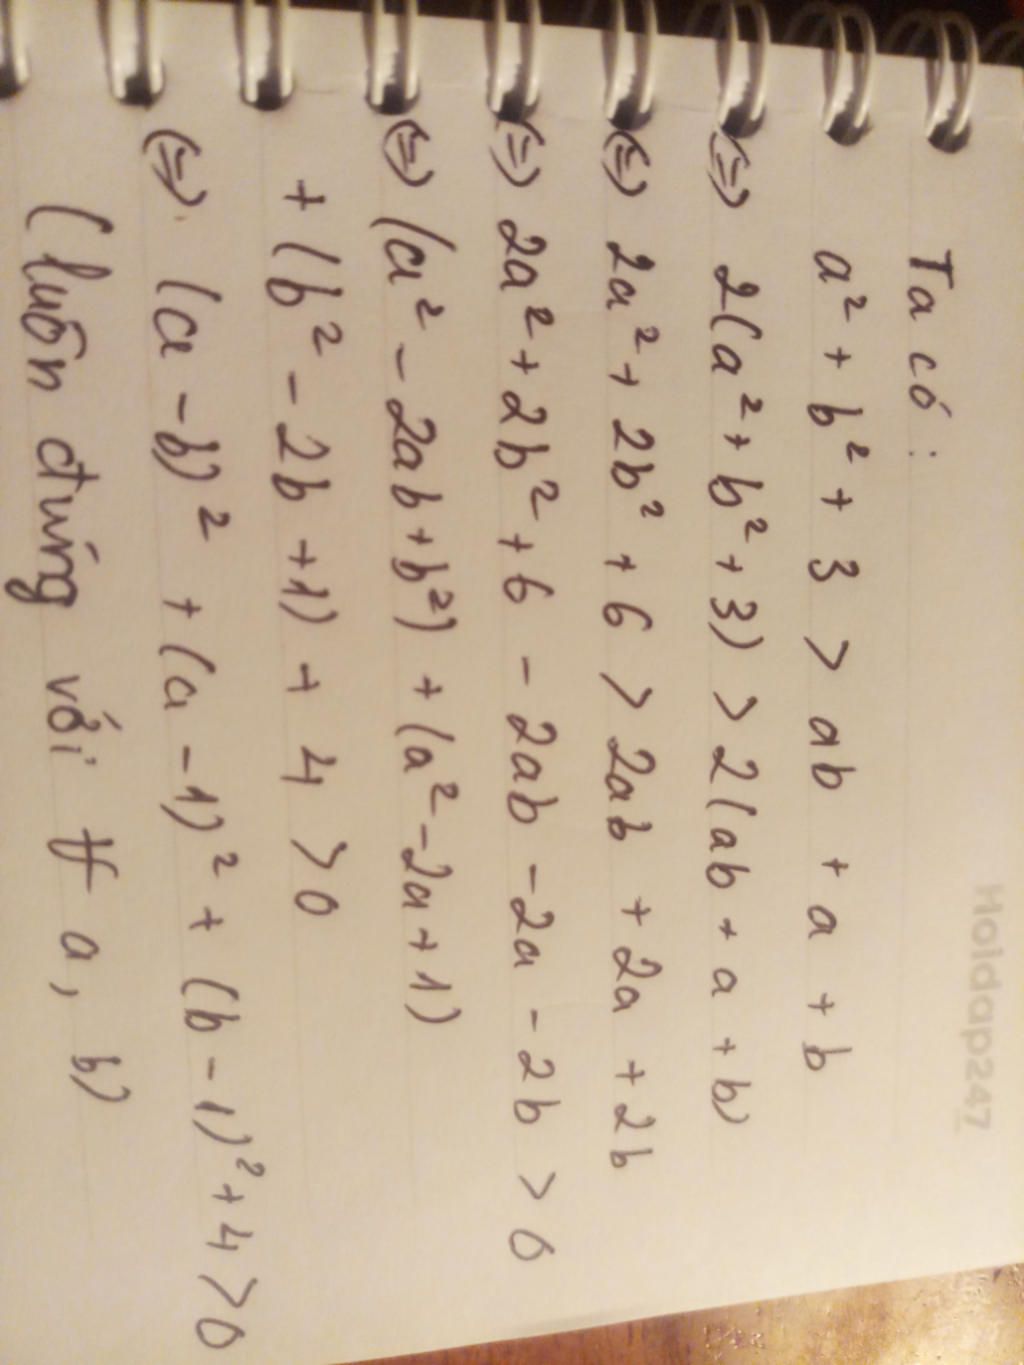 Ta có:
a² + b² + 3 > ab + a + b
(=) 2(a² + b² + 3) > 2(ab + a + b)
(=) 2a² + 2b² + 6 > 2ab + 2a + 2b
(=) 2a² + 2b² + 6 - 2ab - 2a - 2b > 0
(=) (a² - 2ab + b²) + (a² - 2a + 1)
+ (b² - 2b + 1) + 4 > 0
(=) (a - b)² + (a - 1)² + (b - 1)² + 4 > 0
(luôn đúng với ∀ a, b)
Hoidap247